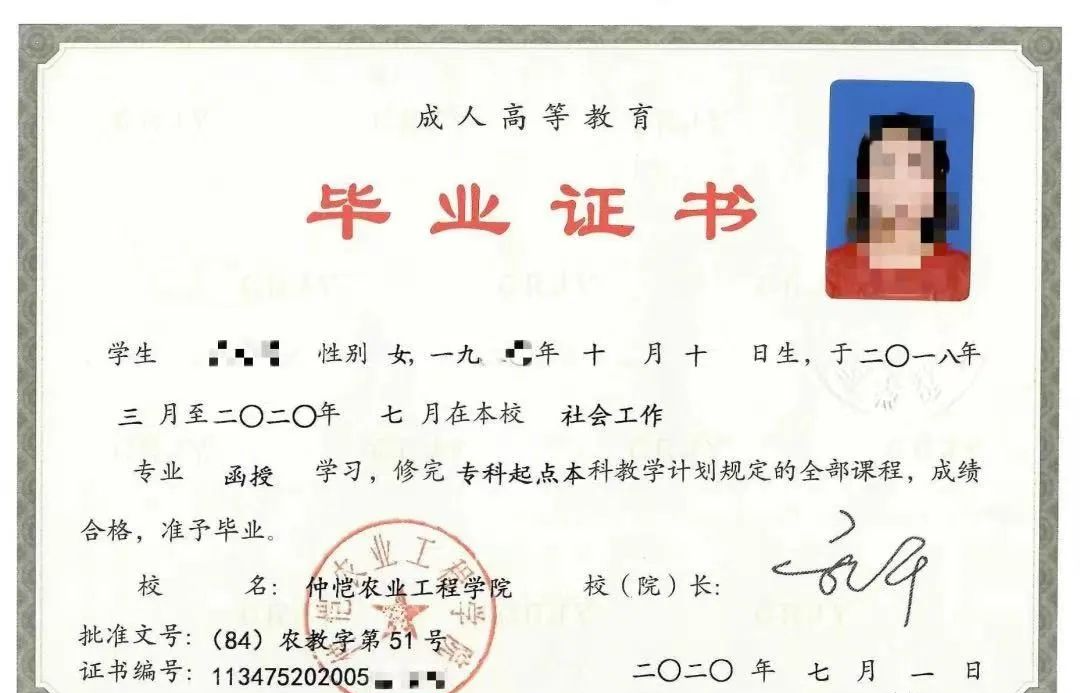 成人高等教育
毕业证书
学生 性别 女,一九 年 十 月 十 日生,于二〇一八年
三 月至二〇二〇年 七 月在本校 社会工作
专业 函授 学习,修完 专科起点本科教学计划规定的全部课程,成绩
合格,准予毕业。
校 名: 仲恺农业工程学院 校(院)长:
批准文号:(84)农教字第51号
证书编号:113475202005
二〇二〇 年 七 月 一 日
仲恺农业工程学院